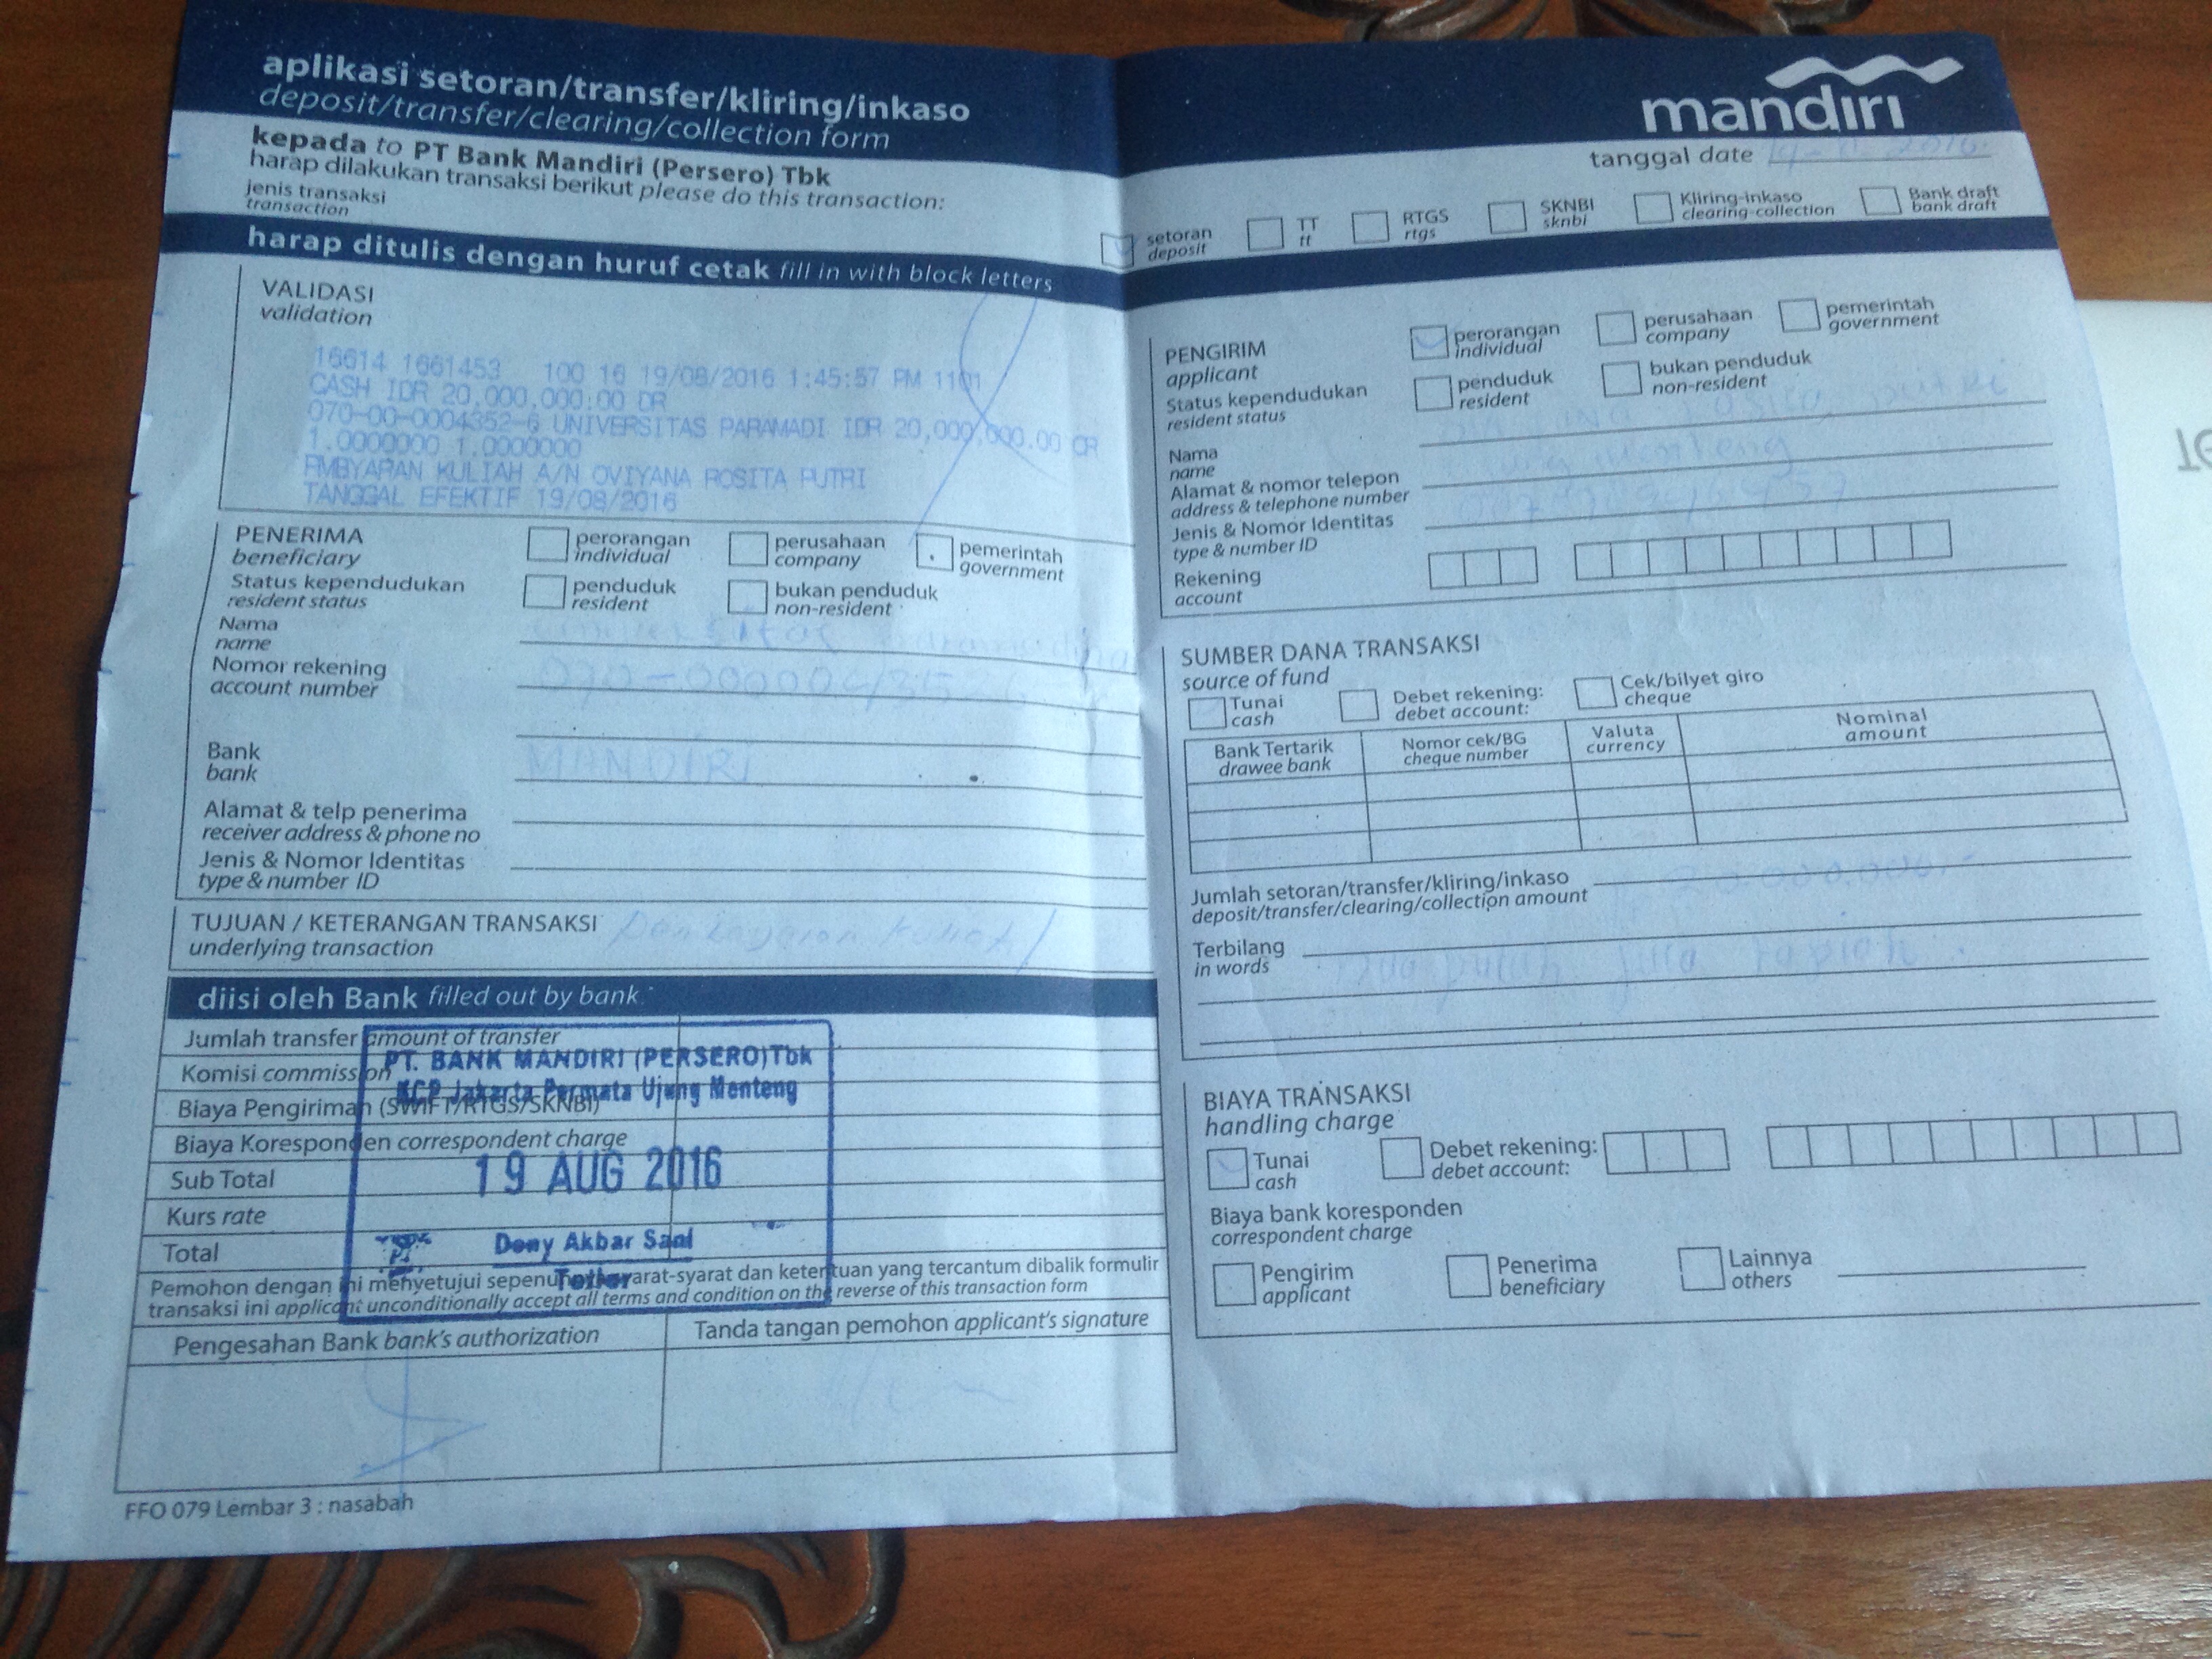 aplikasi setoran/transfer/kliring/inkaso
deposit/transfer/clearing/collection form
mandiri
kepada to PT Bank Mandiri (Persero) Tbk
harap dilakukan transaksi berikut please do this transaction:
tanggal date
jenis transaksi
transaction
setoran
deposit
TT
tt
RTGS
rtgs
SKNBI
sknbi
Kliring-inkaso
clearing-collection
Bank draft
bank draft
harap ditulis dengan huruf cetak fill in with block letters
VALIDASI
validation
16614 1661453 100 16 19/08/2016 1:45:57 PM 1101
CASH IDR 20,000,000.00 DR
070-00-0004352-6 UNIVERSITAS PARAMADI IDR 20,000,000.00 CR
1.0000000 1.0000000
PMBYARAN KULIAH A/N OVIYANA ROSITA PUTRI
TANGGAL EFEKTIF 19/08/2016
PENERIMA
beneficiary
perorangan
individual
perusahaan
company
pemerintah
government
Status kependudukan
resident status
penduduk
resident
bukan penduduk
non-resident
Nama
name
Nomor rekening
account number
Bank
bank
MANDIRI
Alamat & telp penerima
receiver address & phone no
Jenis & Nomor Identitas
type & number ID
TUJUAN / KETERANGAN TRANSAKSI
underlying transaction
diisi oleh Bank filled out by bank
Jumlah transfer amount of transfer
Komisi commission
Biaya Pengiriman (SWIFT/RTGS/SKNBI)
Biaya Koresponden correspondent charge
Sub Total
Kurs rate
Total
PT. BANK MANDIRI (PERSERO)Tbk
KCP Jakarta Permata Ujung Menteng
19 AUG 2016
Deny Akbar Sani
Teller
Pemohon dengan ini menyetujui sepenuhnya syarat-syarat dan ketentuan yang tercantum dibalik formulir
transaksi ini applicant unconditionally accept all terms and condition on the reverse of this transaction form
Pengesahan Bank bank's authorization
Tanda tangan pemohon applicant's signature
FFO 079 Lembar 3 : nasabah
PENGIRIM
applicant
perorangan
individual
perusahaan
company
pemerintah
government
Status kependudukan
resident status
penduduk
resident
bukan penduduk
non-resident
Nama
name
Alamat & nomor telepon
address & telephone number
Jenis & Nomor Identitas
type & number ID
Rekening
account
SUMBER DANA TRANSAKSI
source of fund
Tunai
cash
Debet rekening:
debet account:
Cek/bilyet giro
cheque
Bank Tertarik
drawee bank
Nomor cek/BG
cheque number
Valuta
currency
Nominal
amount
Jumlah setoran/transfer/kliring/inkaso
deposit/transfer/clearing/collection amount
Terbilang
in words
BIAYA TRANSAKSI
handling charge
Tunai
cash
Debet rekening:
debet account:
Biaya bank koresponden
correspondent charge
Pengirim
applicant
Penerima
beneficiary
Lainnya
others